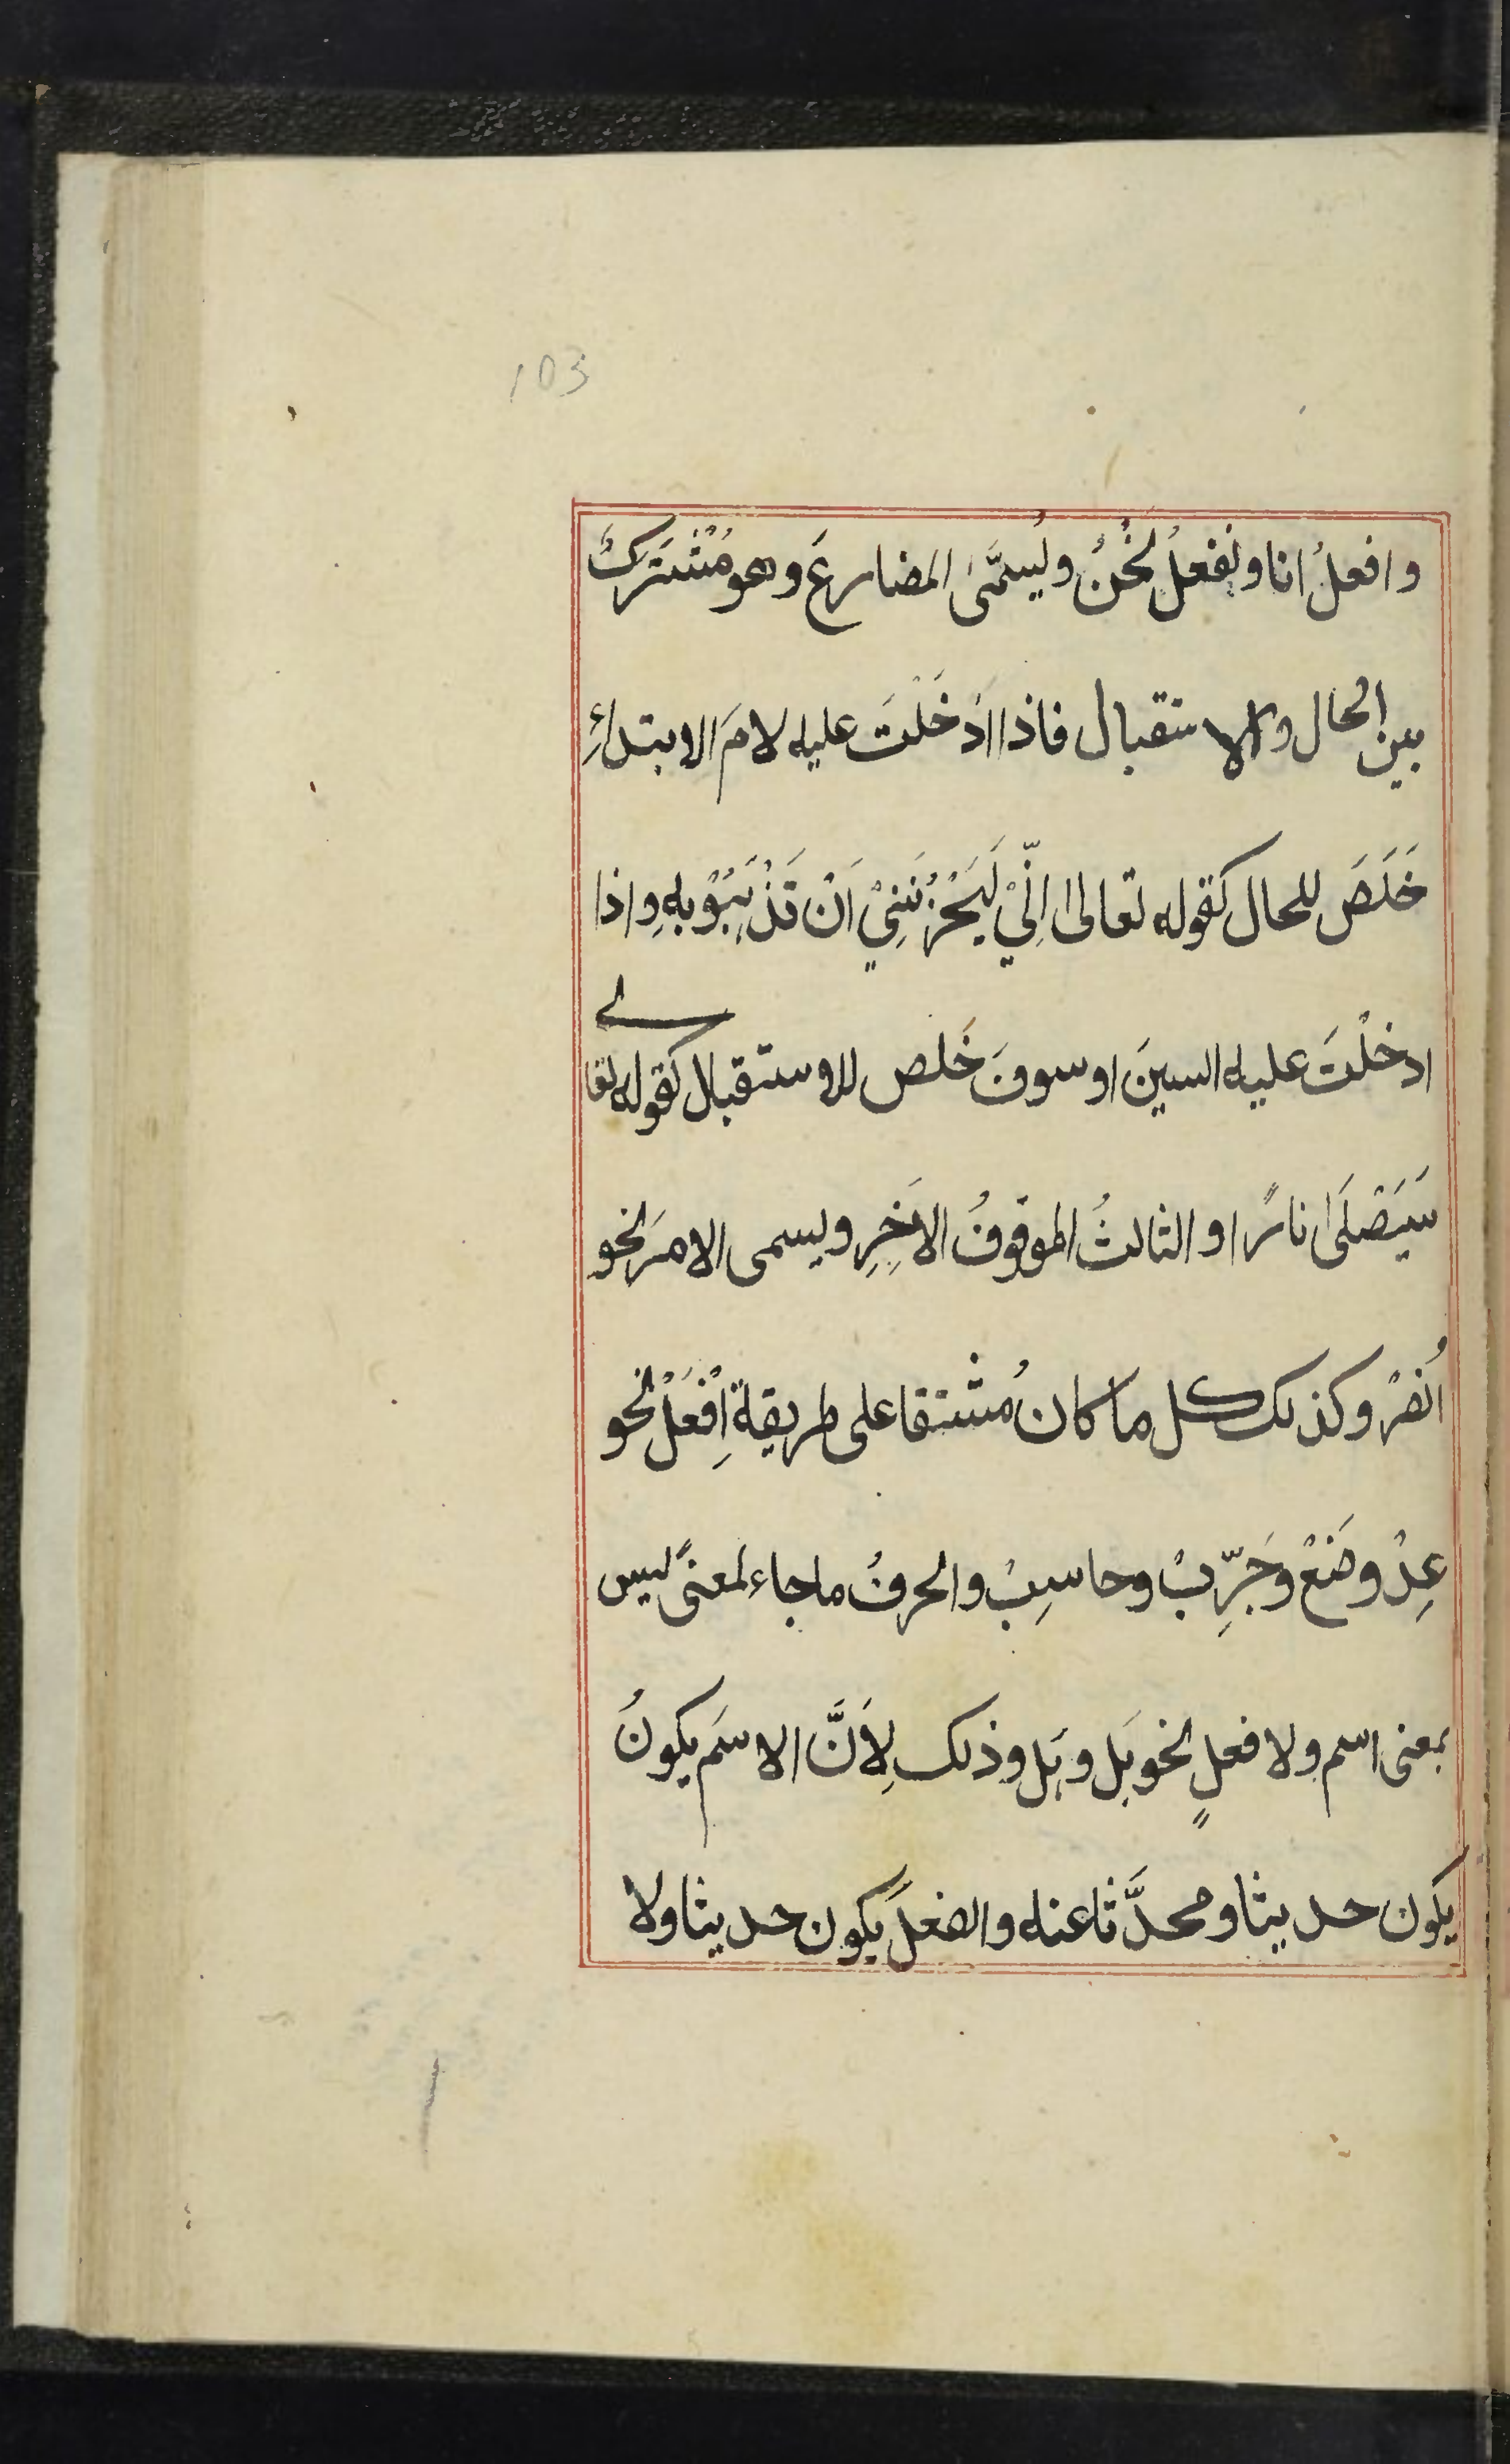 103
وافعلُ انا ونفعلُ نحْنُ ويُسمَّى المضارعَ وهو مُشْتَرَكٌ
بين الحال والاستقبال فاذا اَدْخَلْتَ عليه لامَ الابتداءِ
خَلَصَ للحال كقوله تعالى اِنِّيْ لَيَحْزُنُنِيْ اَنْ تَذْهَبُوْ بِهِ واذا
ادخلْتَ عليه السينَ او سوفَ خَلص للاستقبال كقوله تعالى
سَيَصْلَىٰ نارًا و الثالثُ الموقوفُ الاٰخِرِ ويسمى الامرَ نحو
اُنصُرْ وكذلك كل ما كان مُشتقا على طريقة اِفْعَلْ نحو
عِدْ وضَعْ وجَرِّبْ وحاسِبْ والحرفُ ما جاء لمعنىً ليس
بمعنى اسم ولا فعلٍ نحو هَل وبَل وذلك لِاَنَّ الاسمَ يكونُ
يكون حديثا ومحدَّثا عنه والفعلَ يكون حديثا ولا